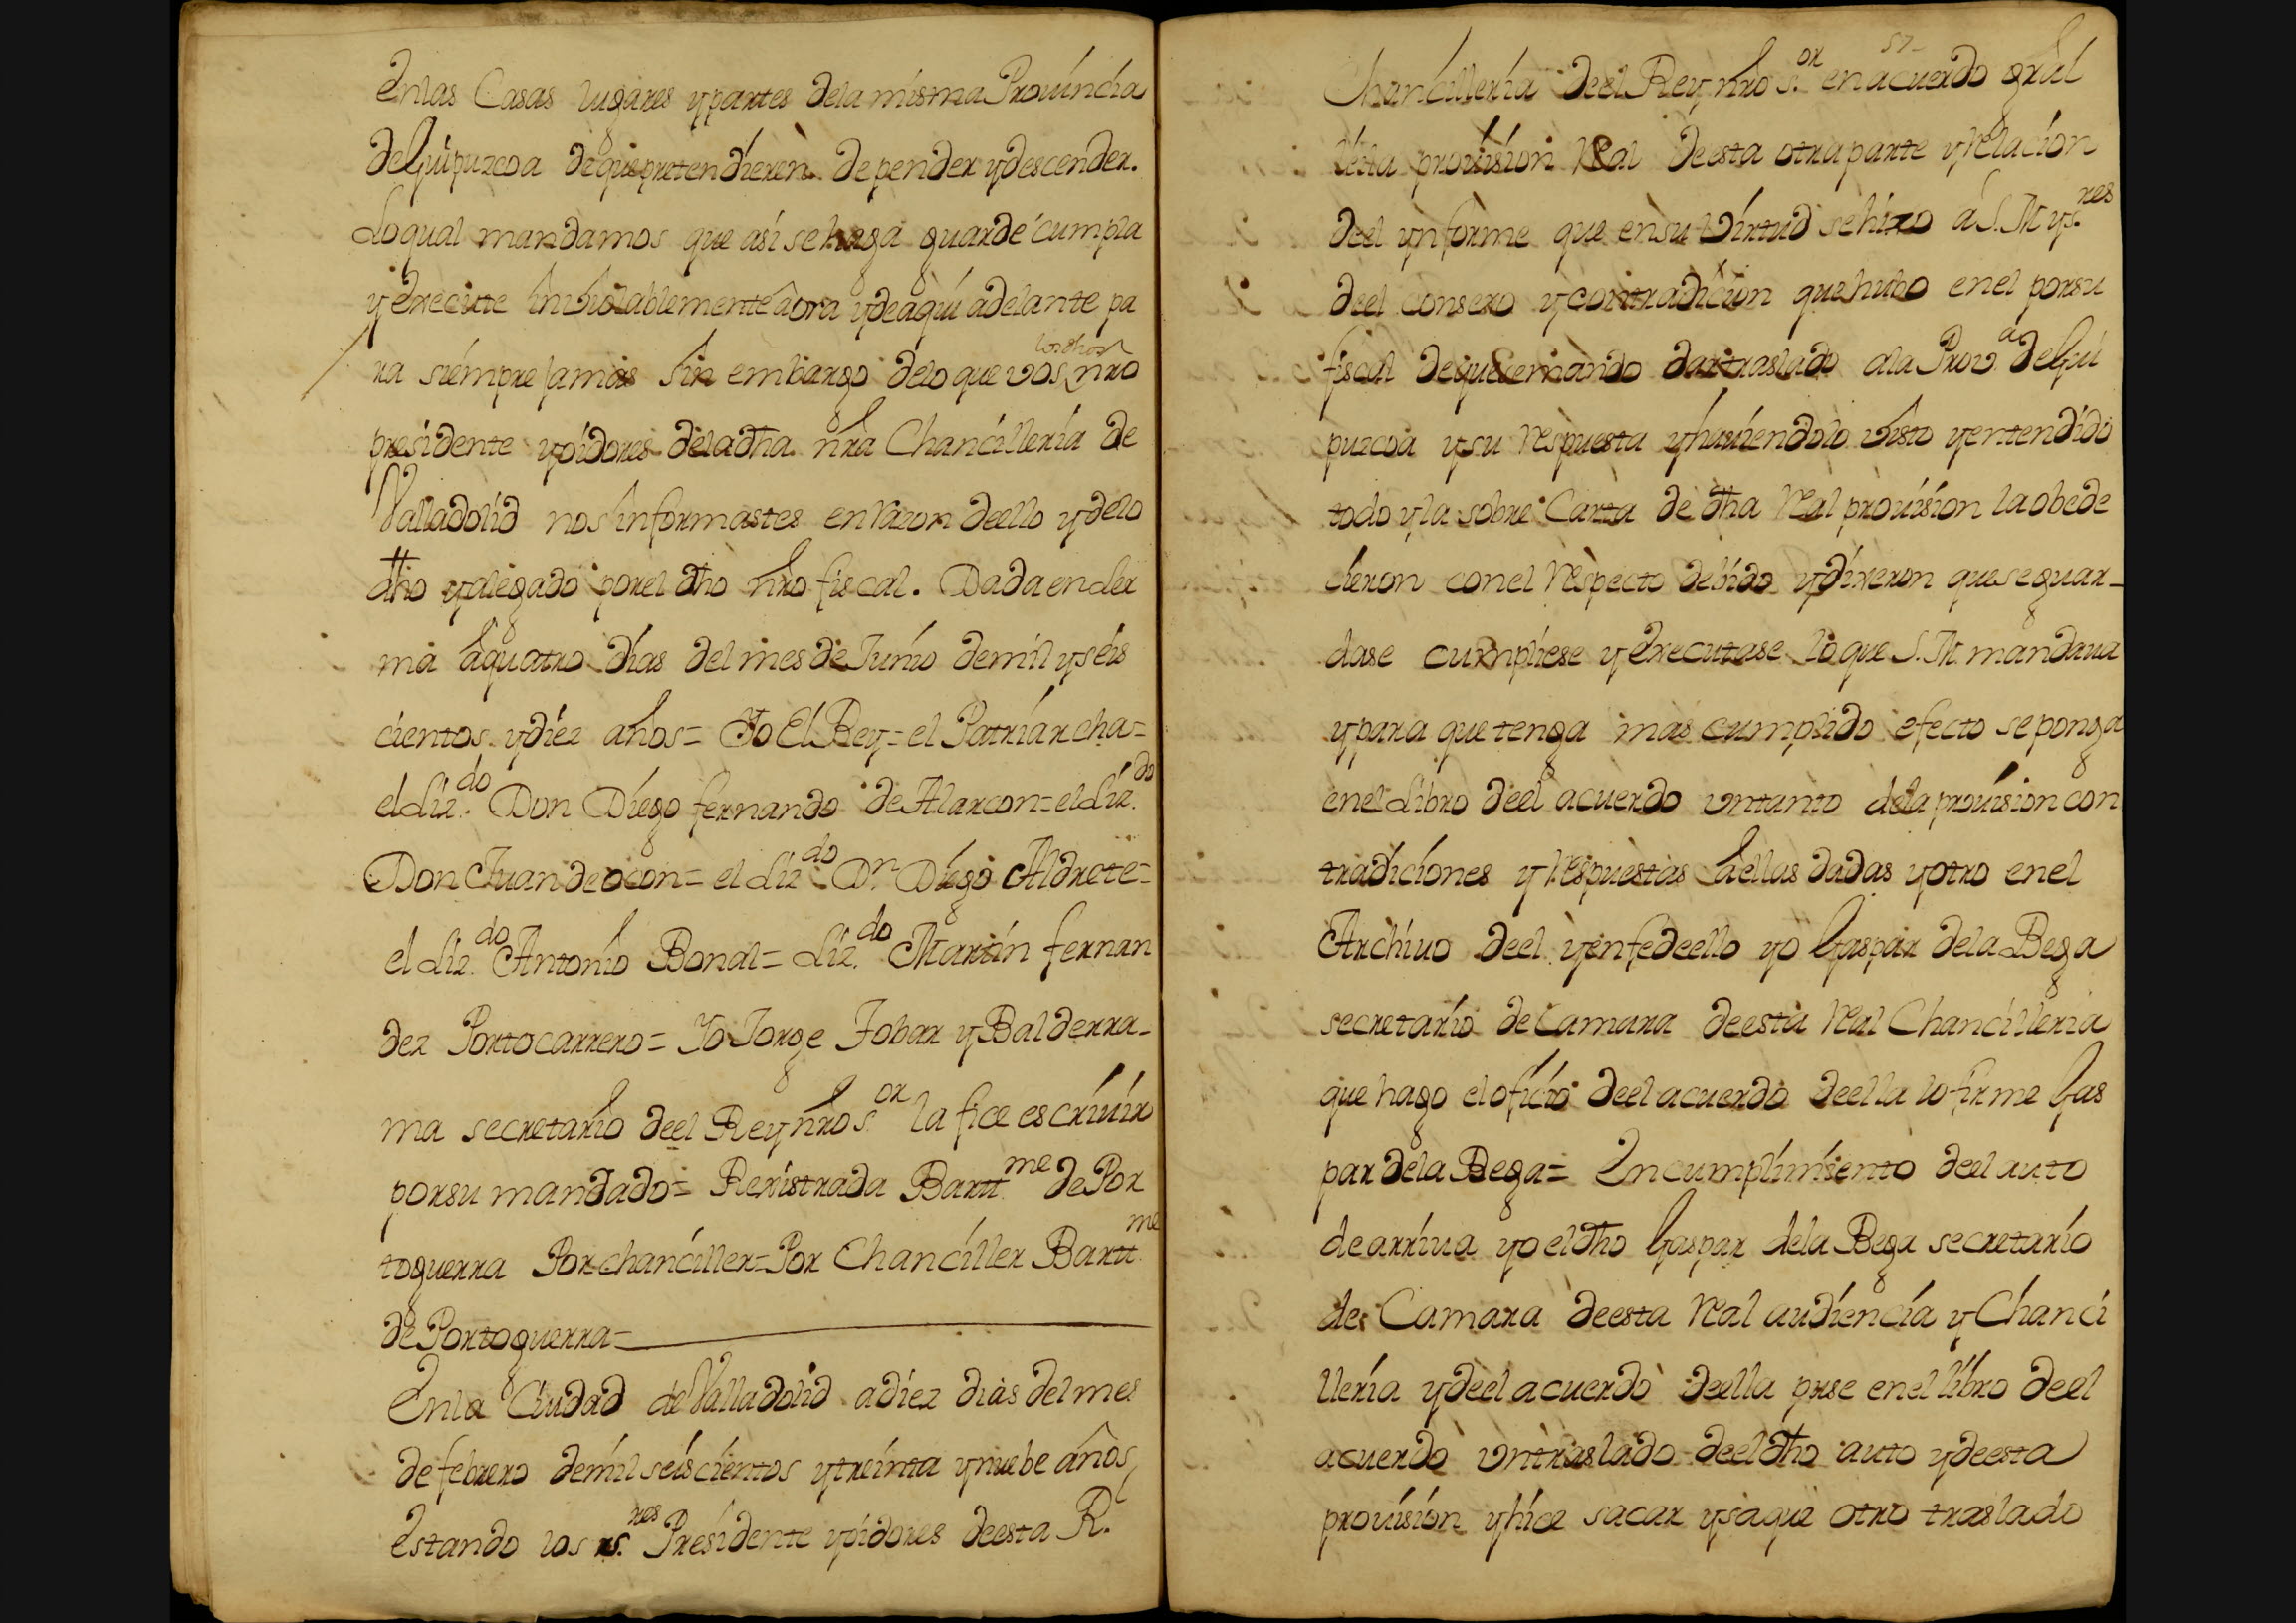 en las Casas lugares y partes de la misma Prouincia
de Guipuzcoa de que pretendieren depender y descender.
Lo qual mandamos que asi se haga guarde cumpla
y execute inviolablemente aora y de aqui adelante pa
ra siempre jamas sin embargo de lo que vos los dhos nro
presidente y oidores de la dha nra Chancilleria de
Valladolid nos informastes en razon de ello y de lo
dho y alegado por el dho nro fiscal. Dada en Ler
ma a quatro dias del mes de Junio de mil y seis
cientos y diez años = Yo El Rey = el Patriarcha =
el Liz.do Don Diego fernando de Alarcon = el Liz.do
Don Juan de ocon = el Liz.do D.n Diego Aldrete =
el Liz.do Antonio Bonal = Liz.do Martin fernan
dez Portocarrero = Yo Jorge Tobar y Balderra-
ma secretario de el Rey nro s.or la fice escriuir
por su mandado = Rexistrada Bartt.me de Por
toguerra Por chanciller = Por Chanciller Bartt.me
de Portoguerra =
En la Ciudad de Valladolid a diez dias del mes
de febrero de mil seiscientos y treinta y nuebe años,
estando los s.res Presidente y oidores de esta R.
57
Chancilleria de el Rey nro s.or en acuerdo gral
leida prouision Real de esta otra parte y relacion
de el ynforme que en su virtud se hizo a S. M. y s.res
de el consexo y contradicion que hubo en el por su
fiscal de que se mando dar traslado a la Prov.a de Gui
puzcoa y su respuesta y hauiendolo visto y entendido
todo y la sobre Carta de dha Real prouision la obede
cieron con el respecto debido y dixeron que se guar-
dase cumpliese y executase lo que S. M. mandaua
y para que tenga mas cumplido efecto se ponga
en el Libro de el acuerdo vn tanto de la prouision con
tradiciones y respuestas a ellas dadas y otro en el
Archiuo de el y en fe de ello yo Gaspar de la Bega
secretario de Camara de esta Real Chancilleria
que hago el oficio de el acuerdo de ella lo firme Gas
par de la Bega = En cumplimiento de el auto
de arriua yo el dho Gaspar de la Bega secretario
de Camara de esta Real audiencia y Chanci
lleria y de el acuerdo de ella puse en el libro de el
acuerdo vn traslado de el dho auto y de esta
prouision y hice sacar y saque otro traslado